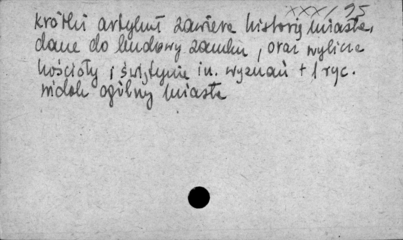 XXX/35
krótki artykuł zawiera historię miasta,
dane do budowy zamku, oraz wylicza
kościoły i świątynie in. wyznań + 1 ryc.
widok ogólny miasta